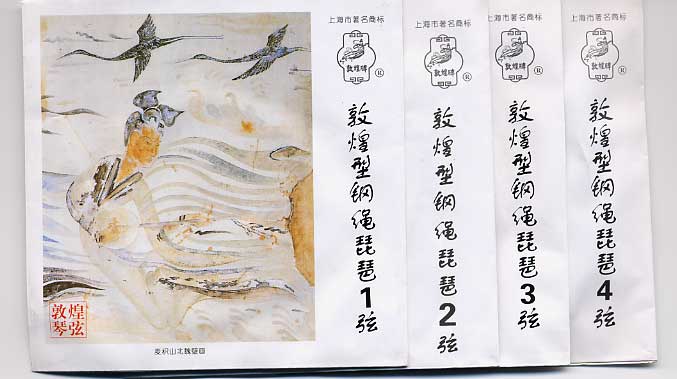 上海市著名商标
敦煌牌
®
敦煌型钢绳琵琶1弦
敦煌
琴弦
麦积山北魏壁画
上海市著名商标
敦煌牌
®
敦煌型钢绳琵琶2弦
上海市著名商标
敦煌牌
®
敦煌型钢绳琵琶3弦
上海市著名商标
敦煌牌
®
敦煌型钢绳琵琶4弦